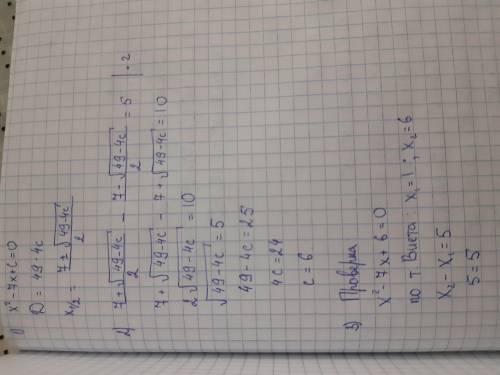 1) x²-7x+c=0
D = 49-4c
x₁/₂ = (7±√(49-4c))/2
2) (7+√(49-4c))/2 - (7-√(49-4c))/2 = 5 | ·2
7+√(49-4c) - 7+√(49-4c) = 10
2√(49-4c) = 10
√(49-4c) = 5
49-4c = 25
4c = 24
c = 6
3) Проверка
x²-7x+6=0
по т Виета: x₁=1; x₂=6
x₂-x₁=5
5=5